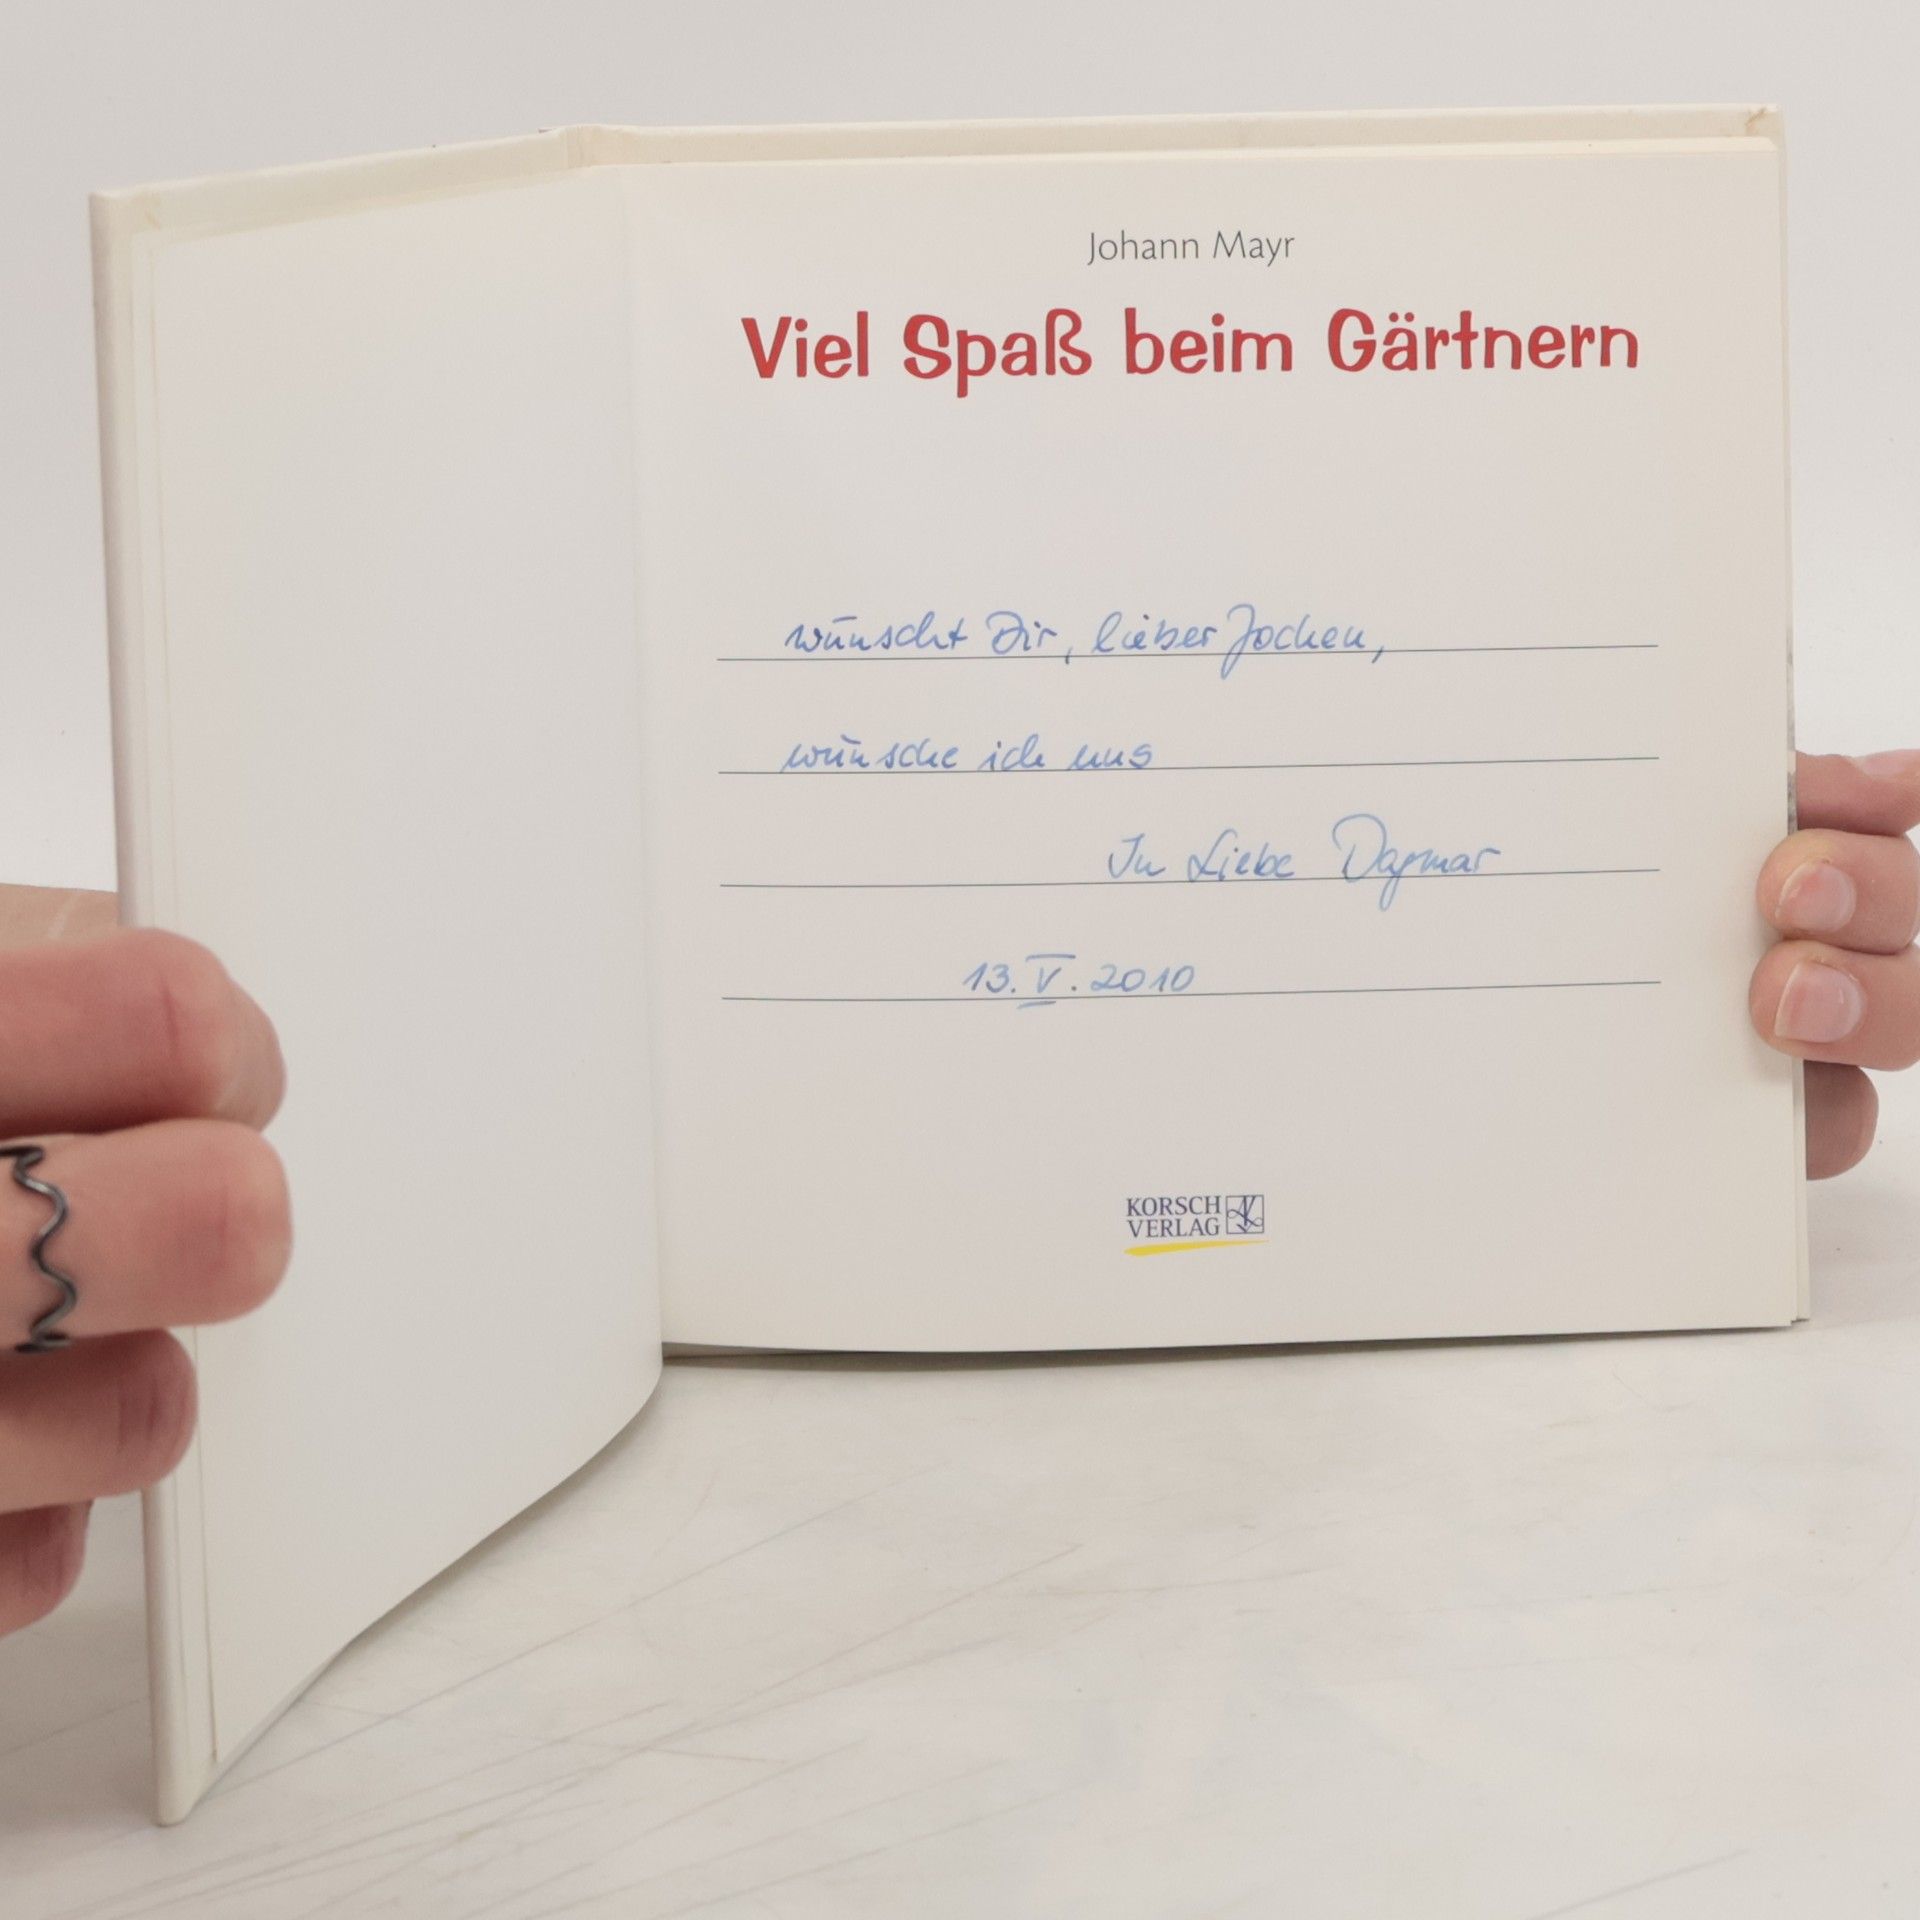 Johann Mayr
Viel Spaß beim Gärtnern
wünscht Dir, lieber Jochen,
wünsche ich uns
In Liebe Dagmar
13. V. 2010
KORSCH
VERLAG